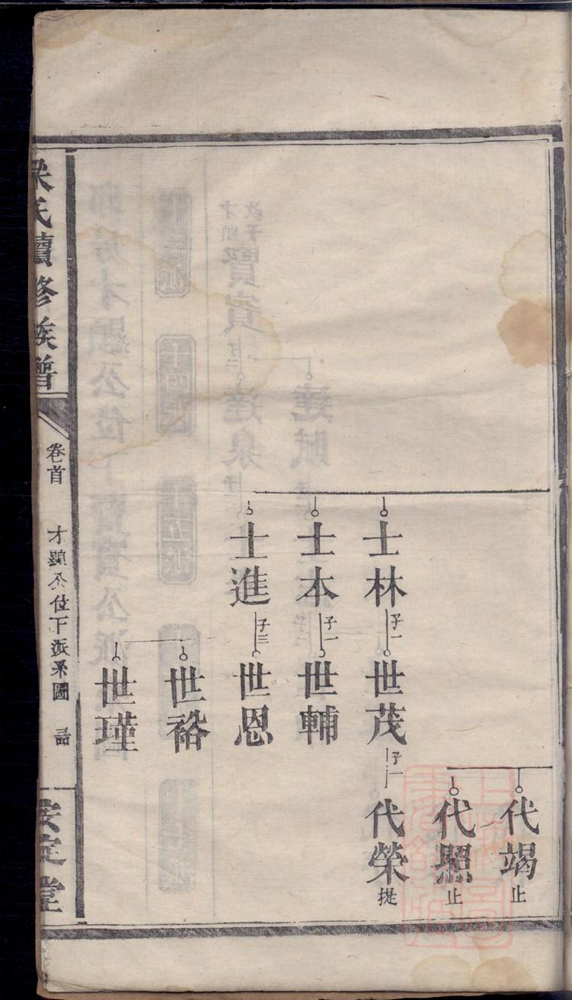 代竭止
代照止
士林子一世茂子一代榮挺
士本子一世輔
士進子三世恩
世裕
世瑾
梁氏續修族譜
卷首
才顯公位下派系圖
安定堂